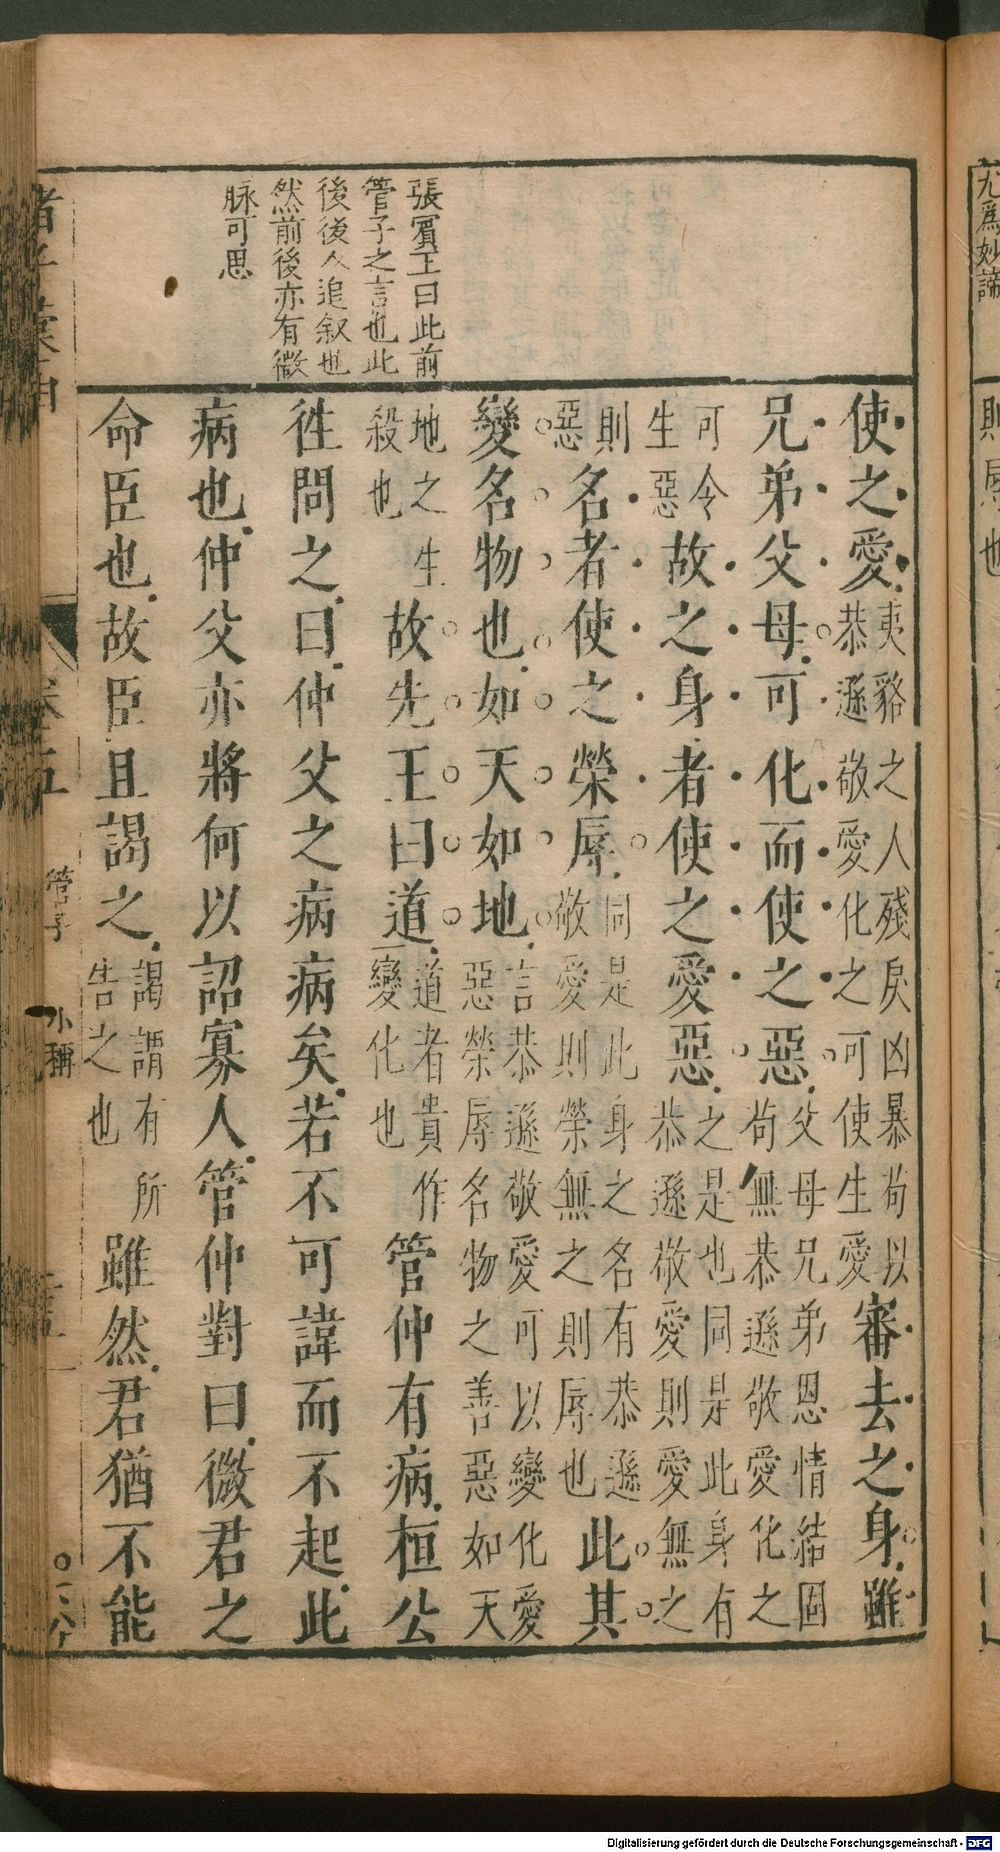 尤為妙諦
則辱也
張賓王曰此前
管子之言也此
後後人追叙也
然前後亦有微
脉可思
使之愛夷貉之人殘戾凶暴苟以恭遜敬愛化之可使生愛審去之身雖
兄弟父母可化而使之惡父母兄弟恩情結固苟無恭遜敬愛化之
可令生惡故之身者使之愛惡之是也同是此身有恭遜敬愛則愛無之
則惡名者使之榮辱同是此身之名有恭遜敬愛則榮無之則辱也此其
變名物也如天如地言恭遜敬愛可以變化愛惡榮辱名物之善惡如天
地之生殺也故先王曰道道者貴作變化也管仲有病桓公
徃問之曰仲父之病病矣若不可諱而不起此
病也仲父亦將何以詔寡人管仲對曰微君之
命臣也故臣且謁之謁謂有所告之也雖然君猶不能
卷五 管子 小稱
Digitalisierung gefördert durch die Deutsche Forschungsgemeinschaft - DFG